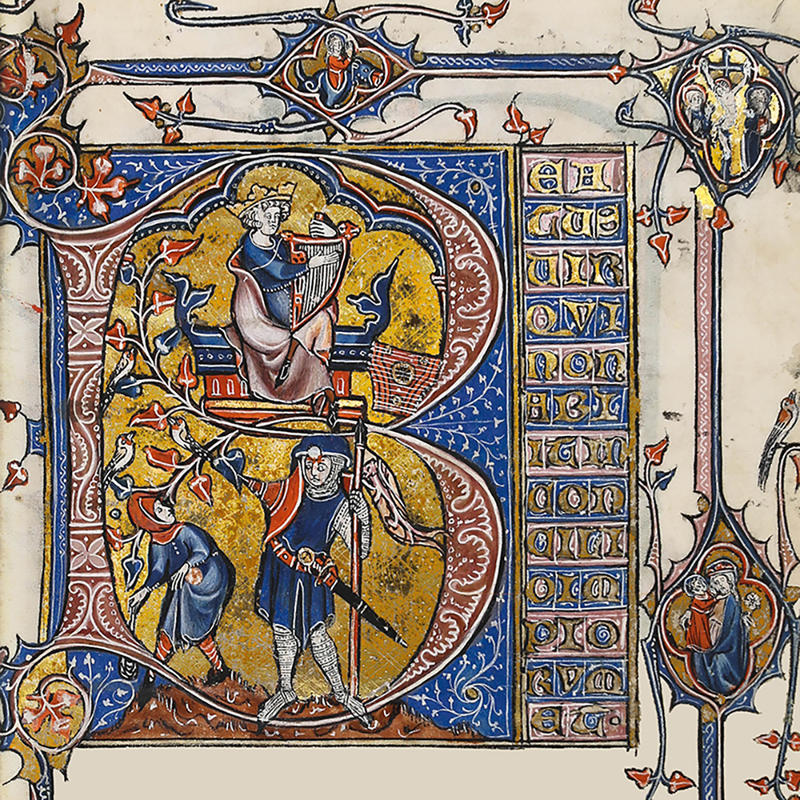 B
EA
TUS
UIR
QVI
NON
ABI
IT IN
CON
SILI
O IM
PIO
RVM
ET·